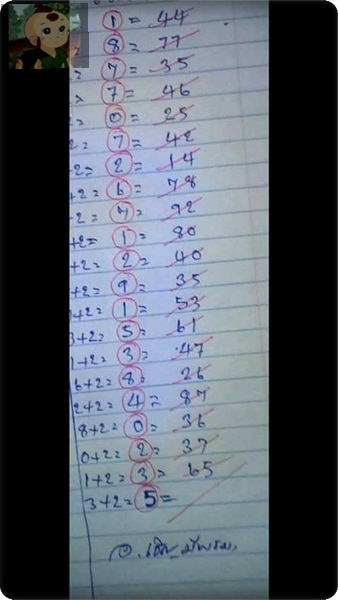 1 = 44
8 = 77
2= 7 = 35
2= 7 = 46
2= 0 = 25
2= 7 = 42
-2= 2 = 14
+2= 6 = 78
-2= 7= 92
+2= 1 = 80
+2= 2 = 40
+2= 9= 35
+2= 1 = 53
3+2= 5= 61
1+2= 3= 47
6+2= 8= 26
2+2= 4= 87
8+2= 0= 36
0+2= 2= 37
1+2= 3= 65
3+2= 5=